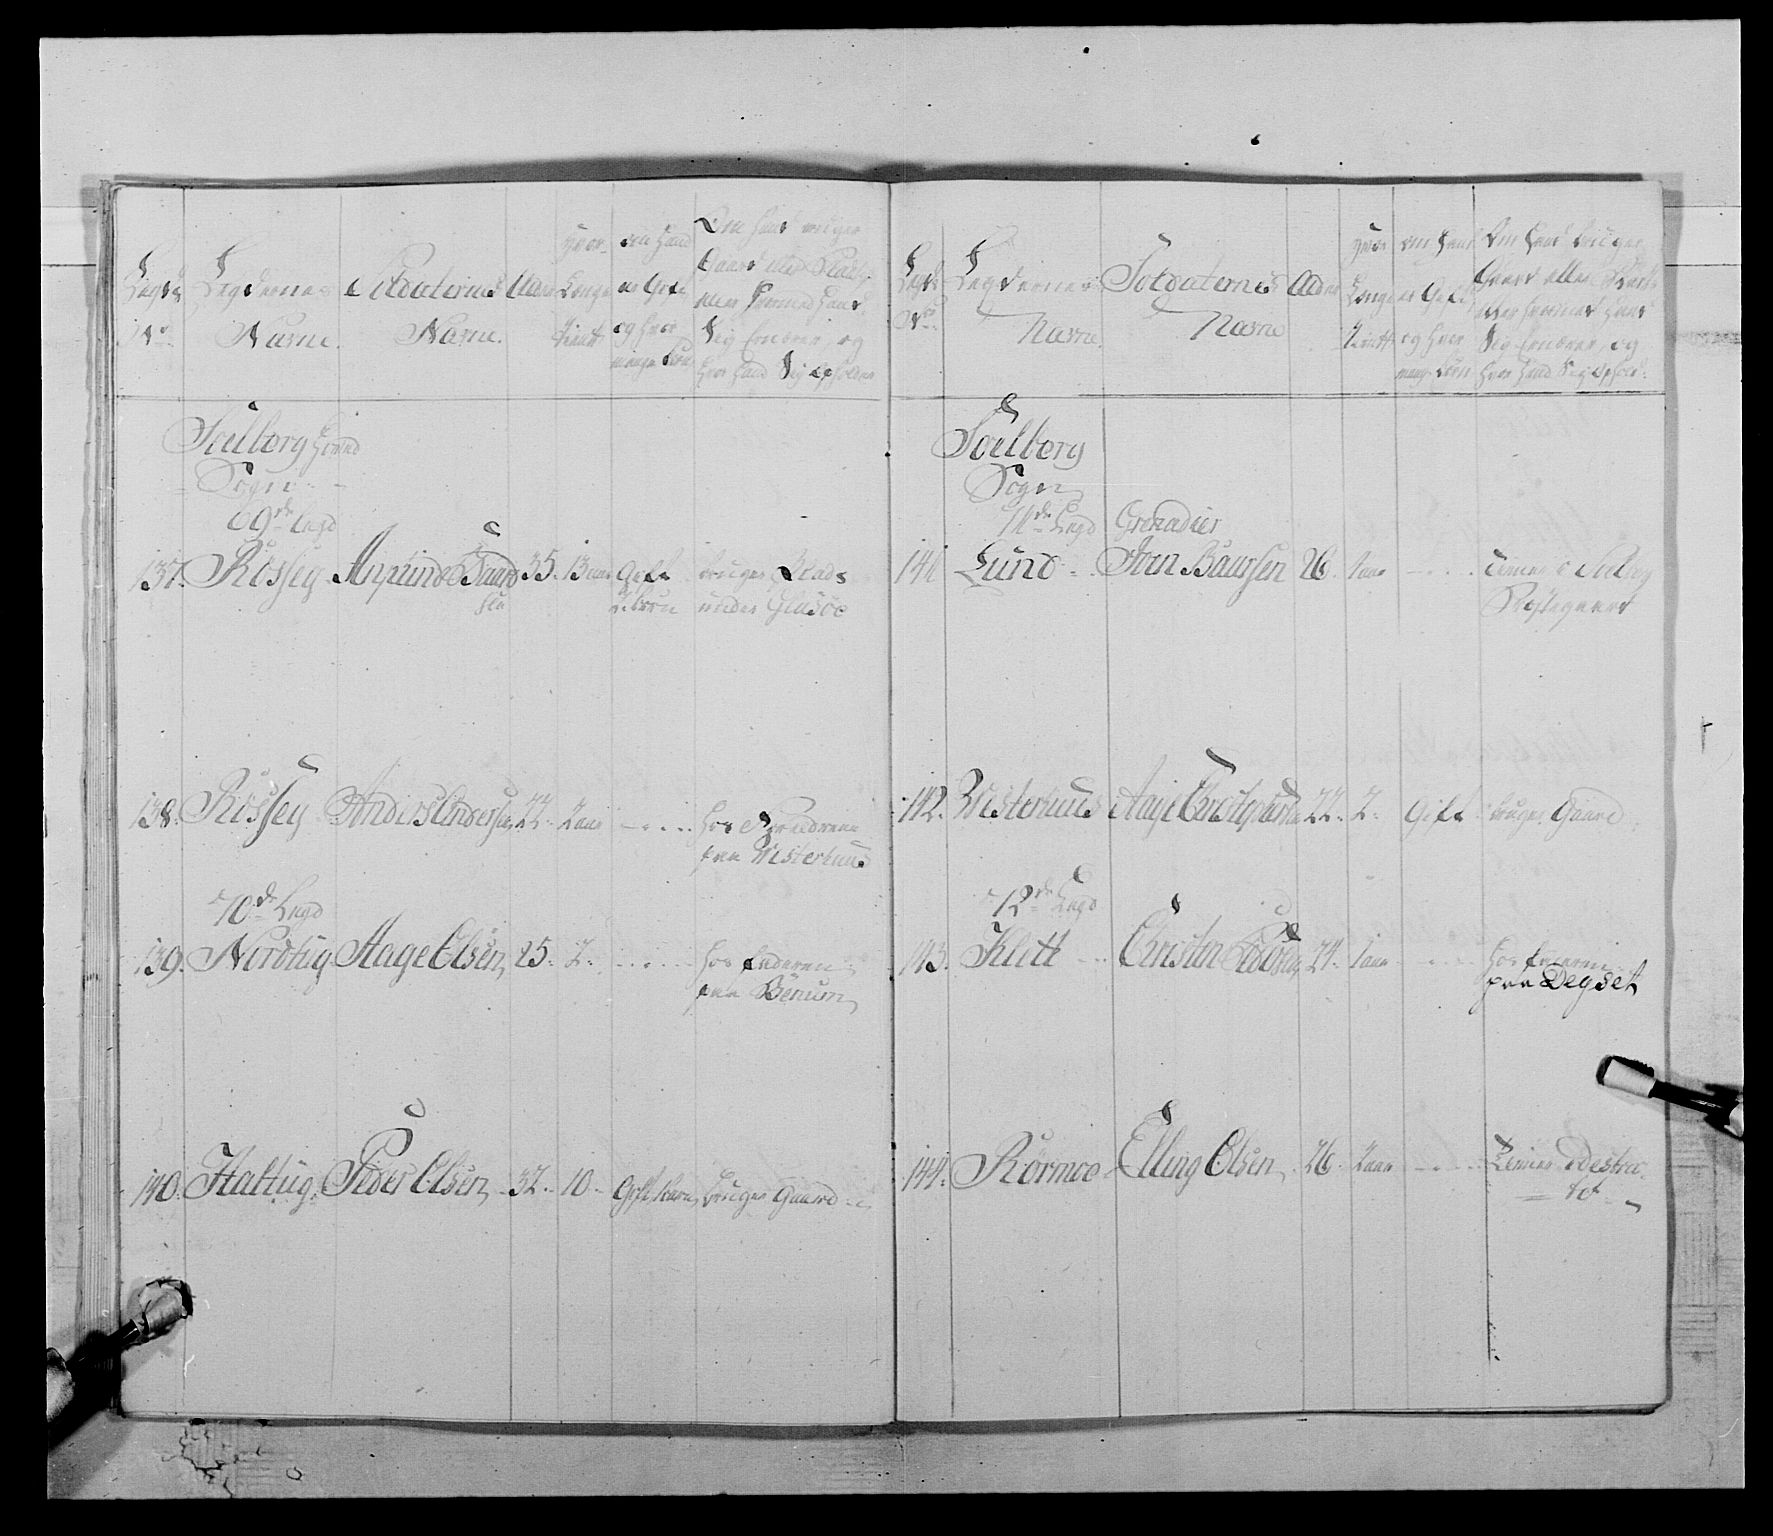 Legds
No
Legdernes
Navne.
Soldaternes
Navne.
Alder
hvor
Længe
tient
om hand
er Gift
og hvor
mange børn
Om hand bruger
Gaard eller Plads,
eller hvormed hand
Sig ernærer, og
hvor hand Sig opholder
Soelberg
Sogn
69de Legd
137. Rössey Amund 35. 13 aar Gift bruger Plads
2 børn under
138. Rössey Anders Andersen 22. 2 aar hos
fra Westerhuus
70de Legd
139. Nordtug Aage Olsen 25. 2. hos faderen
fra Benum
140. Haltug Peder Olsen 32. 10. Gift bruger Gaard
Legds
No
Legdernes
Navne.
Soldaternes
Navne
Alder
hvor
Længe
tient
om hand
er Gift
og hvor
mang børn
Om hand bruger
Gaard eller Plads
eller hvormed hand
Sig ernærer, og
hvor hand Sig ophold:
Soelberg
Sogn
71de Legd Grenadier
141 Lund Joen Baarsen 26. 1 aar tiener
Prestegaard
142. Westerhuus Aage 22. 2. Gift bruger Gaard
72de Legd
143. Klett Christen 24. 1 aar hos faderen
paa Degset
144. Rörmoe Elling Olsen 26. 2 aar tiener